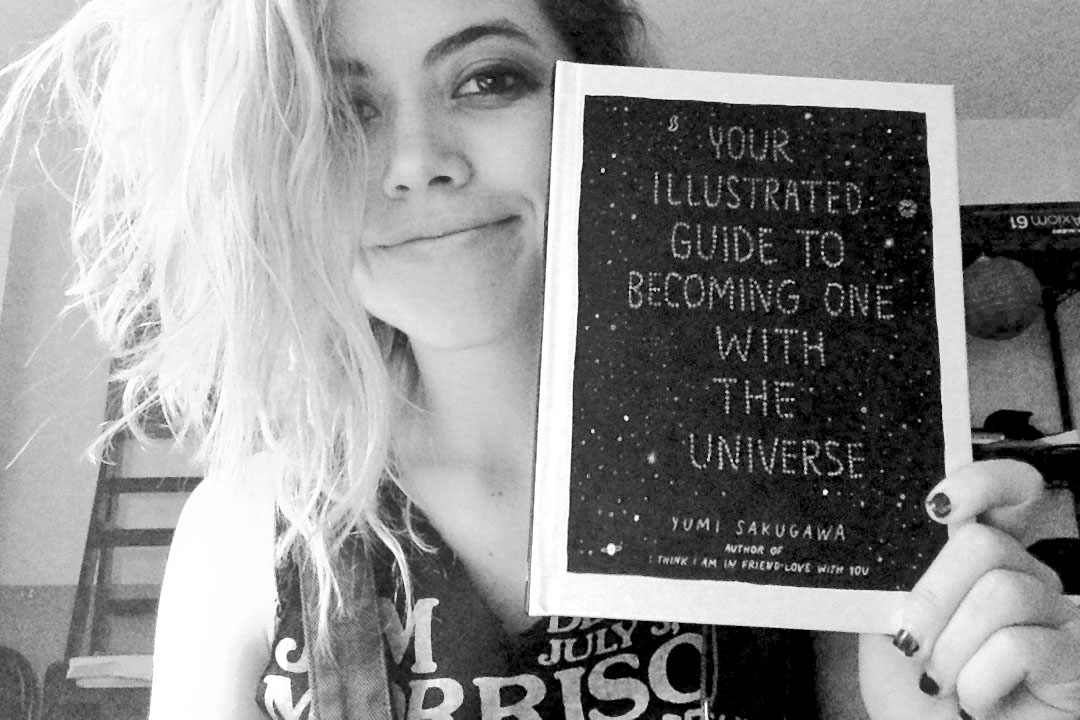 YOUR
ILLUSTRATED
GUIDE TO
BECOMING ONE
WITH
THE
UNIVERSE
YUMI SAKUGAWA
AUTHOR OF
I THINK I AM IN FRIEND-LOVE WITH YOU
Axiom 61
JULY 3,